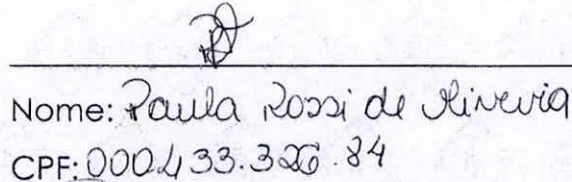 Nome: Paula Rossi de Oliveira
CPF: 000.433.326.84